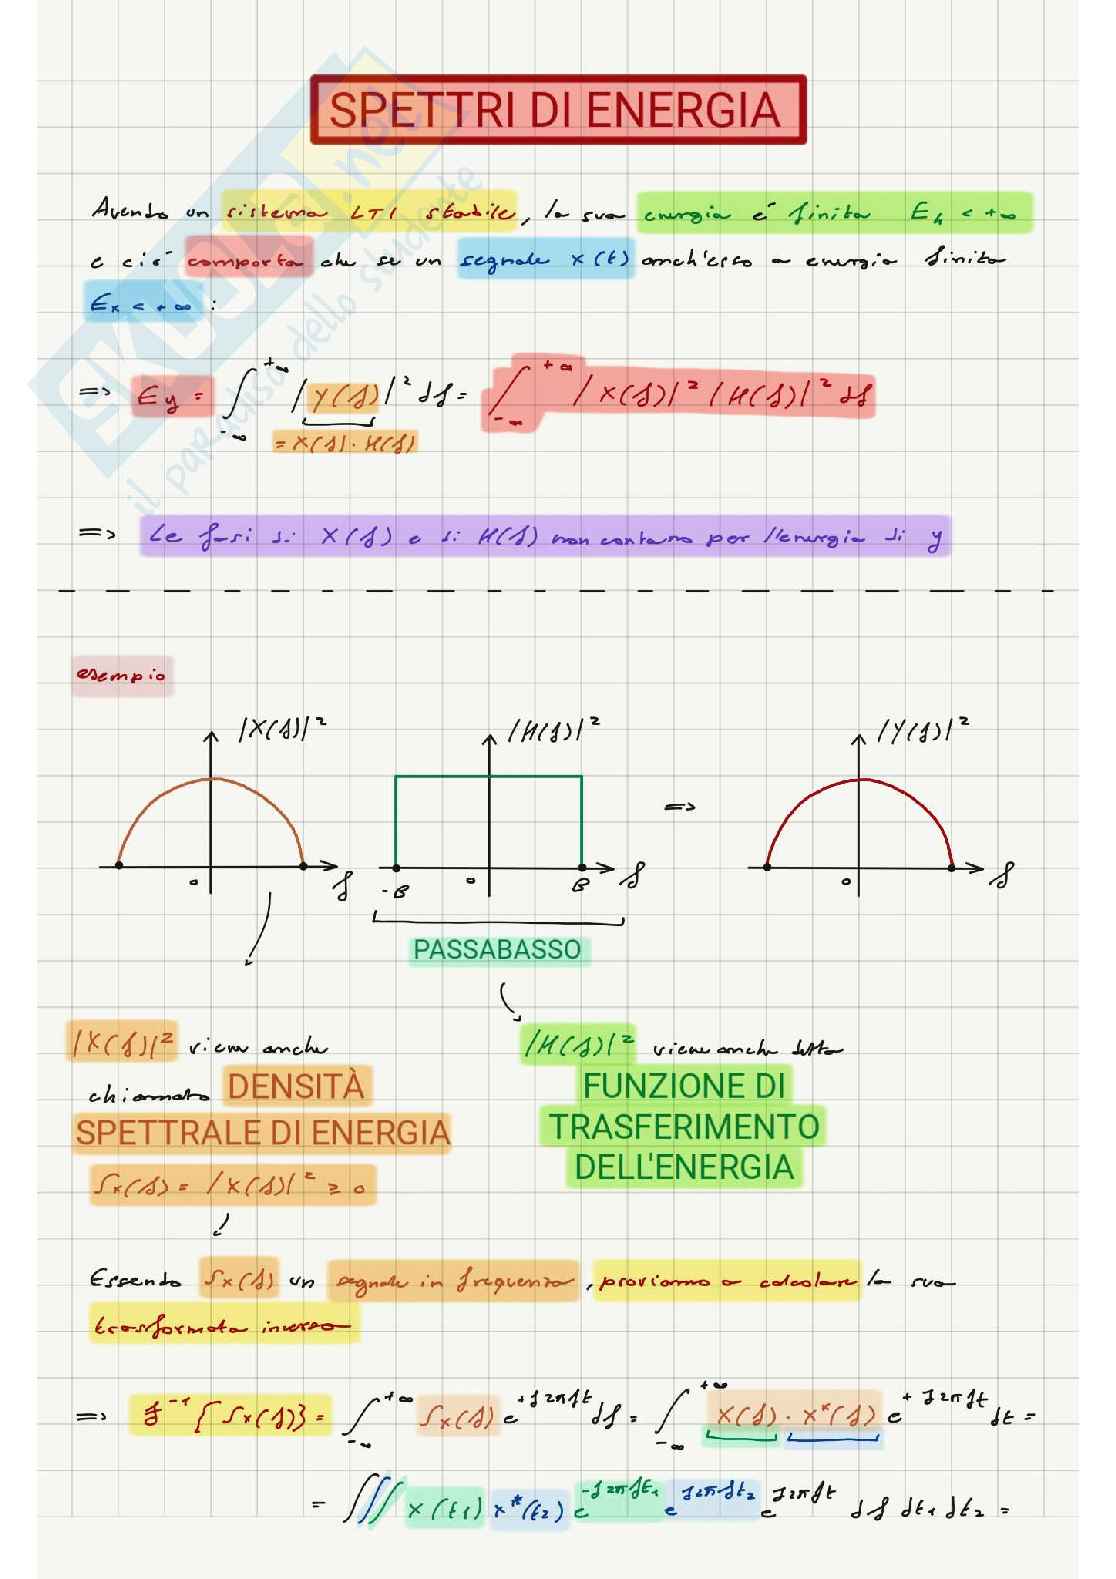 SPETTRI DI ENERGIA
Avendo un sistema LTI stabile, la sua energia é finita E_h < +∞
e ció comporta che se un segnale x(t) anch'esso a energia finita
E_x < +∞ :
=> E_y = ∫_{-∞}^{+∞} |Y(f)|² df = ∫_{-∞}^{+∞} |X(f)|² |H(f)|² df
= X(f) · H(f)
=> Le fasi di X(f) e di H(f) non contano per l'energia di y
esempio
|X(f)|² |H(f)|² |Y(f)|²
=>
0 f -B 0 B f 0 f
PASSABASSO
|X(f)|² viene anche
chiamata DENSITÀ
SPETTRALE DI ENERGIA
S_x(f) = |X(f)|² ≥ 0
|H(f)|² viene anche detta
FUNZIONE DI
TRASFERIMENTO
DELL'ENERGIA
Essendo S_x(f) un segnale in frequenza, proviamo a calcolare la sua
trasformata inversa
=> F⁻¹{S_x(f)} = ∫_{-∞}^{+∞} S_x(f) e^{+j2πft} df = ∫_{-∞}^{+∞} X(f) · X*(f) e^{+j2πft} dt =
= ∫∫∫ x(t₁) x*(t₂) e^{-j2πft₁} e^{j2πft₂} e^{j2πft} df dt₁ dt₂ =
SKUOLA.net
il paradiso dello studente